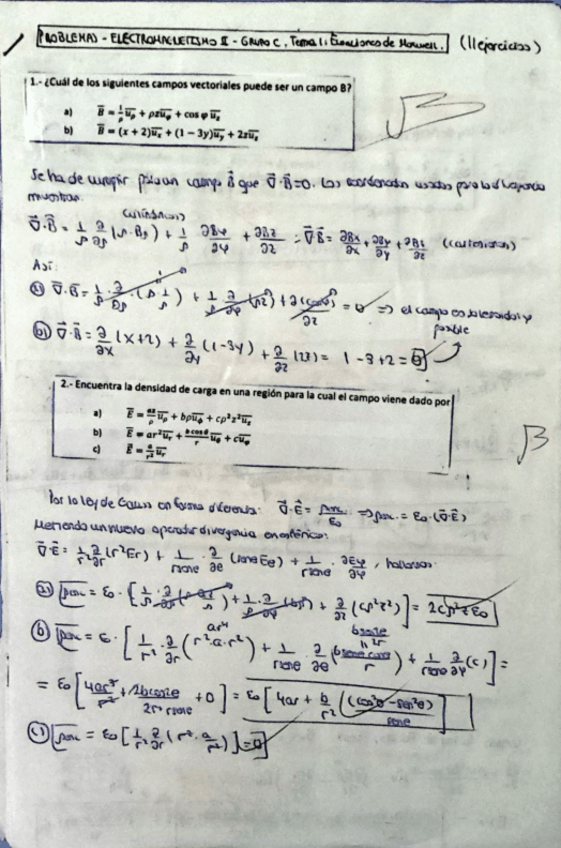 PROBLEMAS - ELECTROMAGNETISMO II - GRUPO C. Tema 1: Ecuaciones de Maxwell. (11 ejercicios)
1.- ¿Cuál de los siguientes campos vectoriales puede ser un campo B?
a) B⃗ = 1/ρ u⃗ρ + ρz u⃗φ + cos φ u⃗z
b) B⃗ = (x + 2)u⃗x + (1 − 3y)u⃗y + 2z u⃗z
Se ha de cumplir para un campo B⃗ que ∇⃗·B⃗=0. Las coordenadas usadas para la divergencia
muestran:
(cilíndricas)
∇⃗·B⃗ = 1/ρ ∂/∂ρ (ρ·Bρ) + 1/ρ ∂Bφ/∂φ + ∂Bz/∂z ; ∇⃗·B⃗ = ∂Bx/∂x + ∂By/∂y + ∂Bz/∂z (cartesianas)
Así:
a) ∇⃗·B⃗ = 1/ρ · ∂/∂ρ (ρ · 1/ρ) + 1/ρ ∂/∂φ (ρz) + ∂(cosφ)/∂z = 0 ⇒ el campo es solenoidal y
posible
b) ∇⃗·B⃗ = ∂/∂x (x+2) + ∂/∂y (1-3y) + ∂/∂z (2z) = 1 - 3 + 2 = 0
2.- Encuentra la densidad de carga en una región para la cual el campo viene dado por
a) E⃗ = az/ρ u⃗ρ + bρ u⃗φ + cρ²z² u⃗z
b) E⃗ = ar² u⃗r + b cos θ/r u⃗θ + c u⃗φ
c) E⃗ = a/r² u⃗r
Por la ley de Gauss en forma diferencial: ∇⃗·E⃗ = ρenc/ε0 ⇒ ρenc = ε0·(∇⃗·E⃗)
un nuevo operador divergencia en esféricas:
∇⃗·E⃗ = 1/r² ∂/∂r (r²Er) + 1/rsenθ · ∂/∂θ (senθ Eθ) + 1/rsenθ · ∂Eφ/∂φ, hallamos:
a) ρenc = ε0 · [1/ρ · ∂/∂ρ (ρ az/ρ) + 1/ρ · ∂/∂φ (bρ) + ∂/∂z (cρ²z²)] = 2cρ²zε0
b) ρenc = ε0 · [1/r² · ∂/∂r (r²·a·r²) + 1/rsenθ · ∂/∂θ (b senθ cosθ/r) + 1/rsenθ ∂/∂φ (c)] =
= ε0 [4ar³/r² + 2b cos2θ/2r·rsenθ + 0] = ε0 [4ar + b/r² (cos²θ - sen²θ)/senθ]
c) ρenc = ε0 [1/r² ∂/∂r (r² · a/r²)] = 0